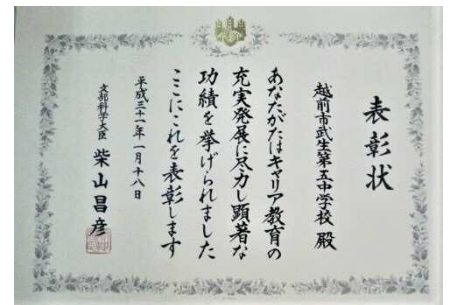 表彰状
越前市武生第五中学校 殿
あなたがたはキャリア教育の
充実発展に尽力し顕著な
功績を挙げられました
ここにこれを表彰します
平成三十一年一月十八日
文部科学大臣 柴山昌彦